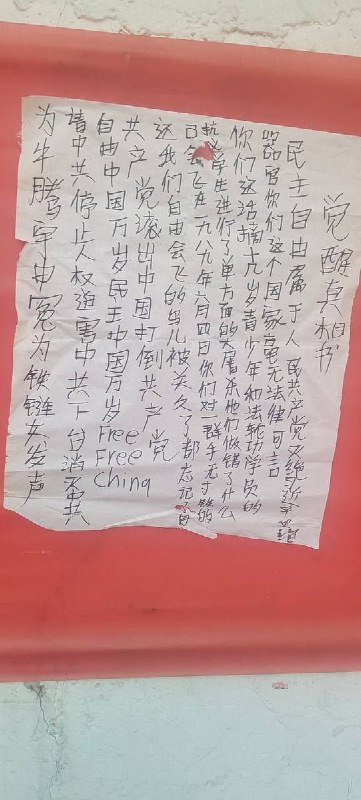 觉醒真相书
民主自由属于人民共产党
器官你们这个国家毫无法律可言
你们这活摘十九岁青少年和法轮功学员的
抗议学生进行了单方面的大屠杀他们做错了什么
已会飞在一九八九年六月四日你们对群手无寸铁的
这我们自由会飞的鸟儿被关久了都忘记自
共产党滚出中国打倒共产党
自由中国万岁民主中国万岁Free Free China
请中共停止人权迫害中共下台消灭中共
为牛腾宇申冤为铁链女发声